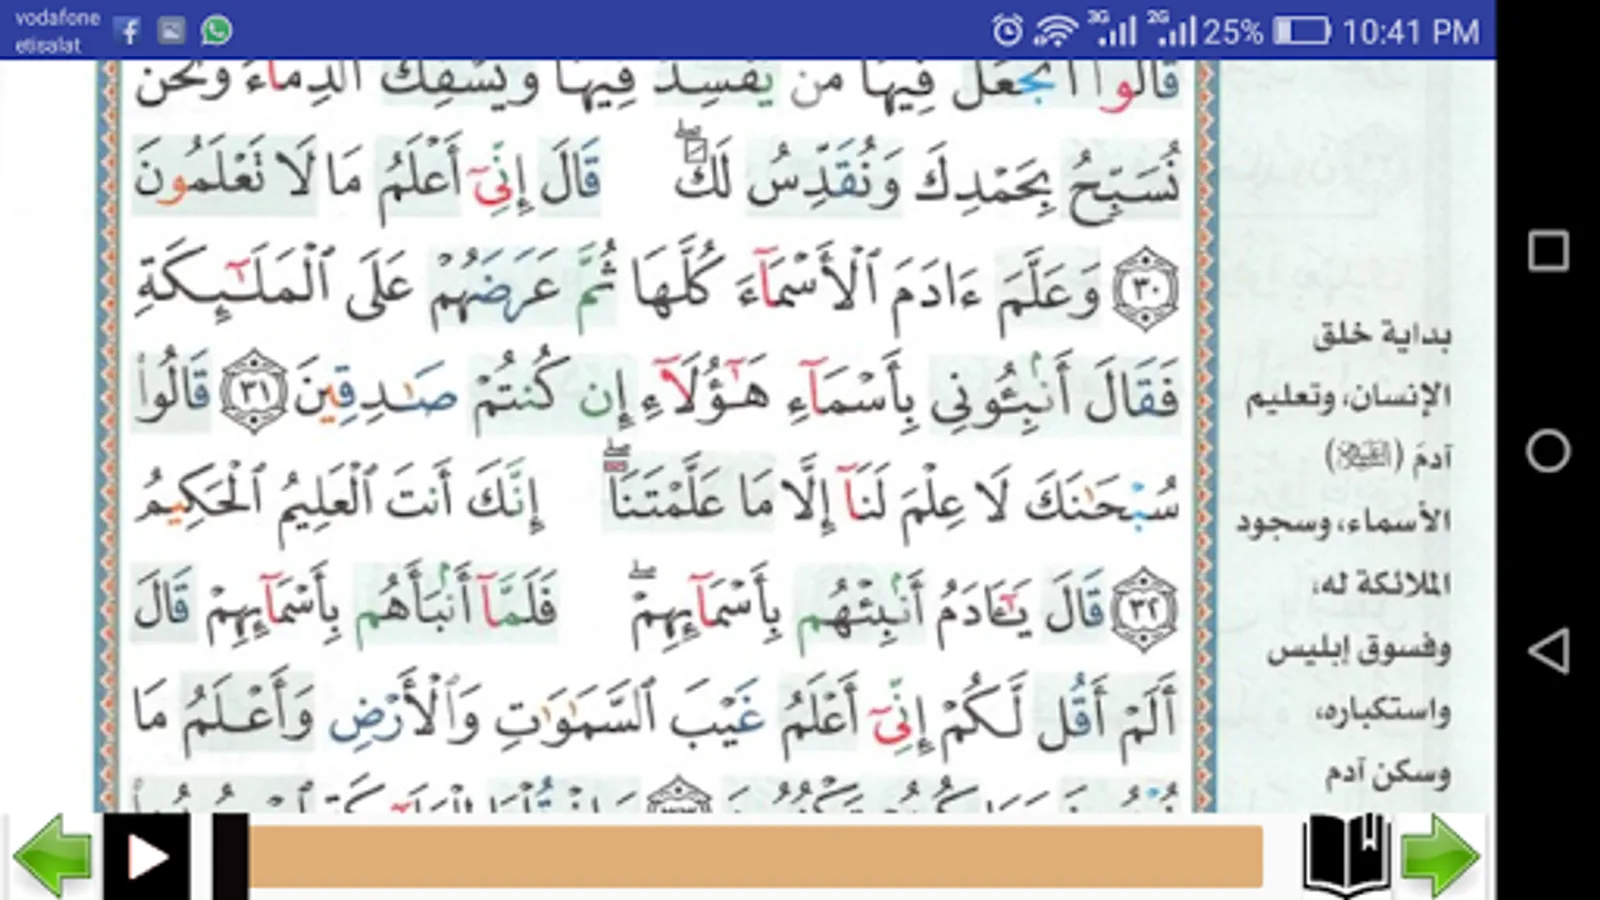 vodafone
etisalat
3G
2G
25%
10:41 PM
قَالُوٓا۟ أَتَجْعَلُ فِيهَا مَن يُفْسِدُ فِيهَا وَيَسْفِكُ ٱلدِّمَآءَ وَنَحْنُ
نُسَبِّحُ بِحَمْدِكَ وَنُقَدِّسُ لَكَ ۖ قَالَ إِنِّىٓ أَعْلَمُ مَا لَا تَعْلَمُونَ
٣٠ وَعَلَّمَ ءَادَمَ ٱلْأَسْمَآءَ كُلَّهَا ثُمَّ عَرَضَهُمْ عَلَى ٱلْمَلَـٰٓئِكَةِ
فَقَالَ أَنۢبِـُٔونِى بِأَسْمَآءِ هَـٰٓؤُلَآءِ إِن كُنتُمْ صَـٰدِقِينَ ٣١ قَالُوا۟
سُبْحَـٰنَكَ لَا عِلْمَ لَنَآ إِلَّا مَا عَلَّمْتَنَآ ۖ إِنَّكَ أَنتَ ٱلْعَلِيمُ ٱلْحَكِيمُ
٣٢ قَالَ يَـٰٓـَٔادَمُ أَنۢبِئْهُم بِأَسْمَآئِهِمْ ۖ فَلَمَّآ أَنۢبَأَهُم بِأَسْمَآئِهِمْ قَالَ
أَلَمْ أَقُل لَّكُمْ إِنِّىٓ أَعْلَمُ غَيْبَ ٱلسَّمَـٰوَٰتِ وَٱلْأَرْضِ وَأَعْلَمُ مَا
بداية خلق
الإنسان، وتعليم
آدمَ (عليه السلام)
الأسماء، وسجود
الملائكة له،
وفسوق إبليس
واستكباره،
وسكن آدم